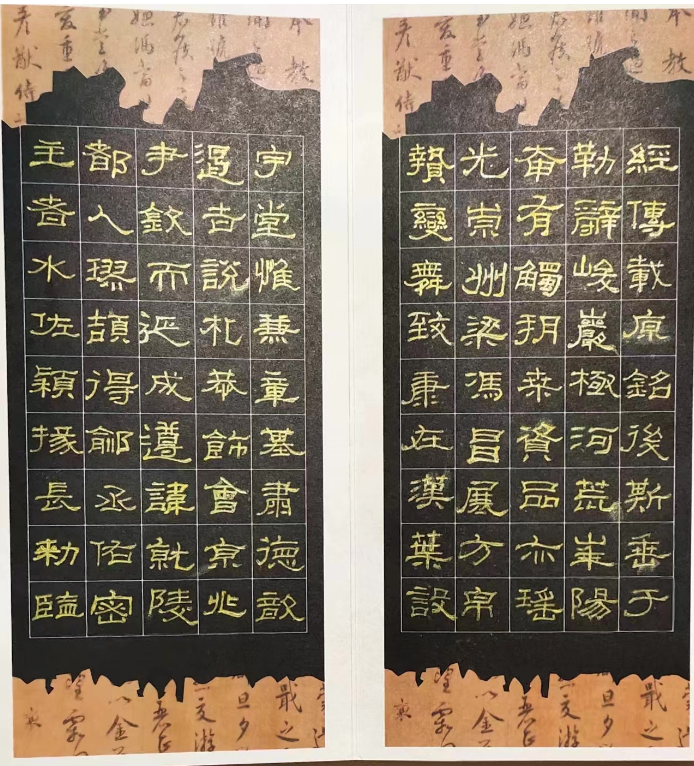 經傳載原銘後斯垂于
勒辭峻巖極河荒崋陽
奄有觸朔桒資品亦瑤
光崇州梁馮昌展方帛
贄變舞致康在漢葉設
宇堂惟兼章基肅德歆
遏吉說札恭飾會京兆
尹欽而延成遵諱就陵
都人璆頡得鄃丞佑密
主者水佐穎掾長勑監